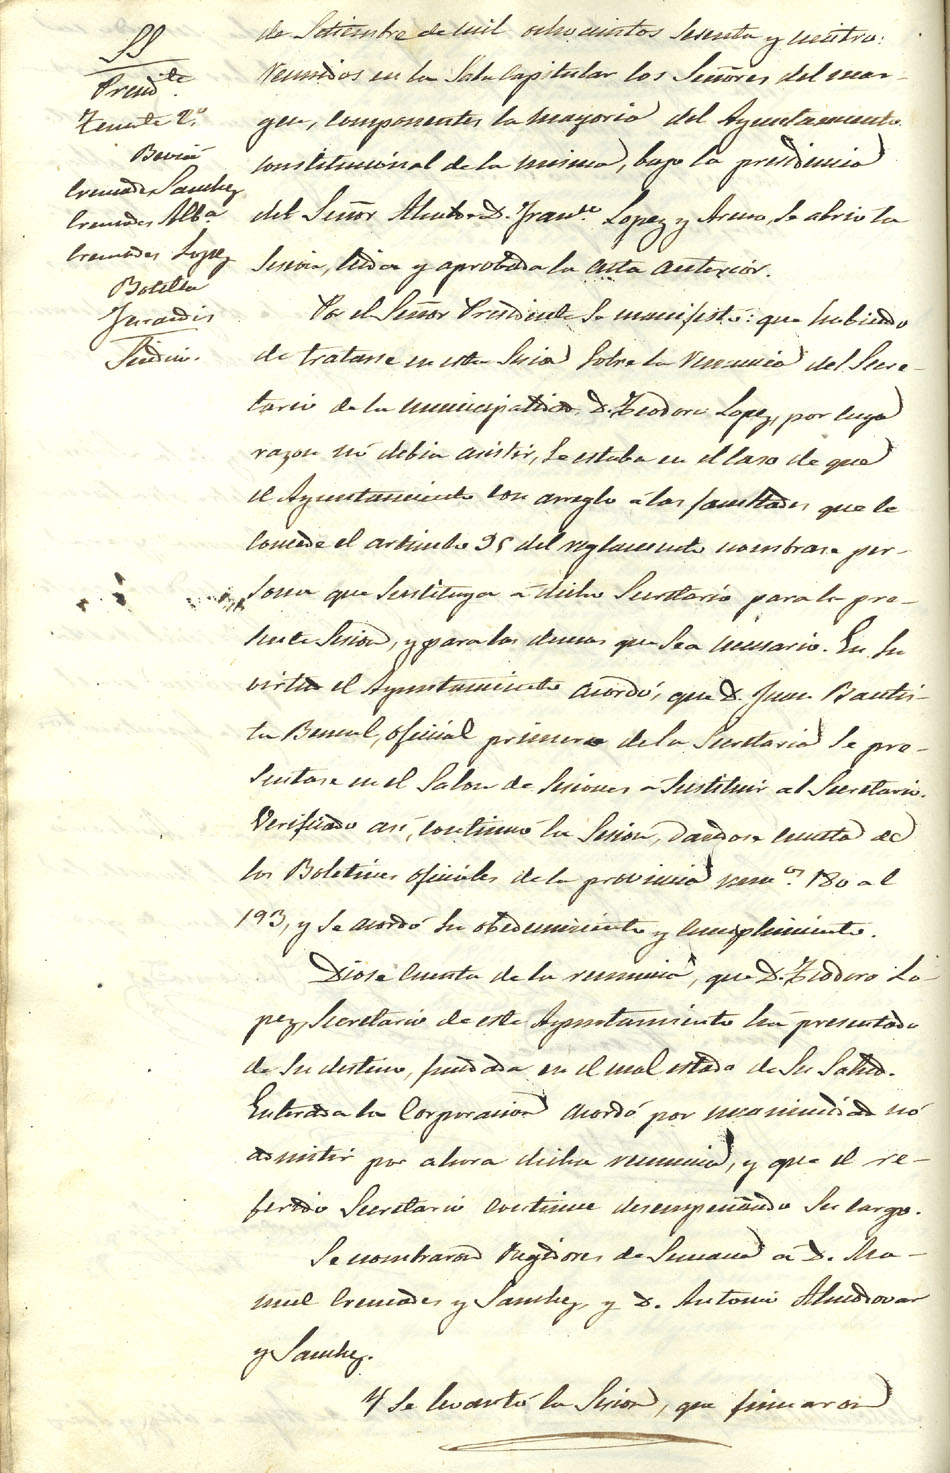 SS
Presid.te
Teniente 2.º
Beviá
Cremades Sanchez
Cremades Alb.a
Cremades Lopez
Botella
Jurardis
Sindico.
de Setiembre de mil ochocientos sesenta y cuatro:
reunidos en la Sala Capitular los Señores del mar-
gen, componentes la mayoria del Ayuntamiento
constitucional de la misma, bajo la presidencia
del Señor Alcalde D. Fran.co Lopez y Areu, se abrió la
sesion, leida y aprobada la acta anterior.
Por el Señor Presidente se manifestó: que habiendo
de tratarse en esta Sesion sobre la renuncia del Secre-
tario de la municipalidad D. Teodoro Lopez, por cuya
razon nó debia asistir, se estaba en el caso de que
el Ayuntamiento con arreglo á las facultades que le
concede el articulo 95 del reglamento nombrase per-
sona que sustituya á dicho Secretario para la pre-
sente Sesion, y para las demas que sea necesario. En su
virtud el Ayuntamiento acordó, que D. Juan Bautis-
ta oficial primero de la Secretaria se pre-
sentase en el Salon de Sesiones á sustituir al Secretario.
Verificado así, continuó la Sesion, dandose cuenta de
los Boletines oficiales de la provincia num.os 180 al
193, y se acordó su obedecimiento y cumplimiento.
Diose cuenta de la renuncia, que D. Teodoro Lo-
pez, Secretario de este Ayuntamiento há presentado
de su destino, fundada en el mal estado de su salud.
Enterada la Corporacion acordó por unanimidad nó
admitir por ahora dicha renuncia, y que el re-
ferido Secretario continue desempeñando su cargo.
Se nombraron Regidores de Semana á D. Ma-
nuel Cremades y Sanchez, y D. Antonio Almodovar
y Sanchez.
Y se levantó la Sesion, que firmaron